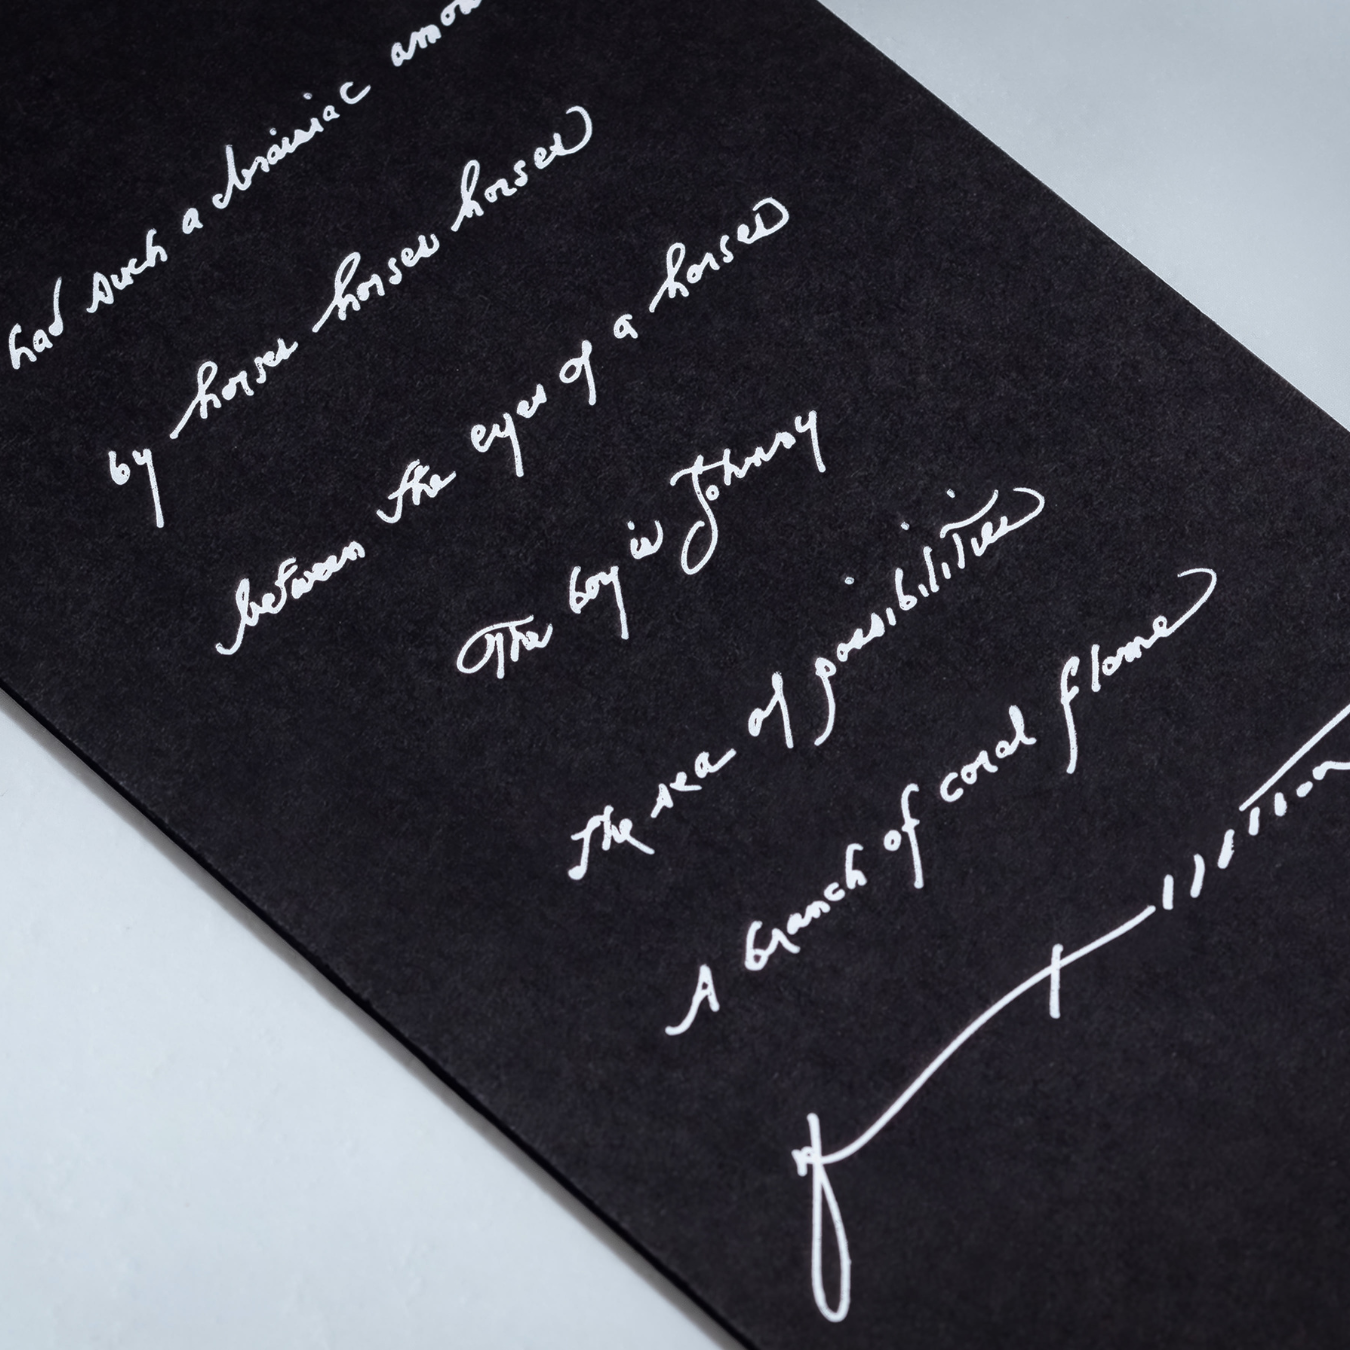 had such a brainiac
by horses horses horses
between the eyes of a horses
The boy is Johnny
The sea of possibilities
A branch of coral flame